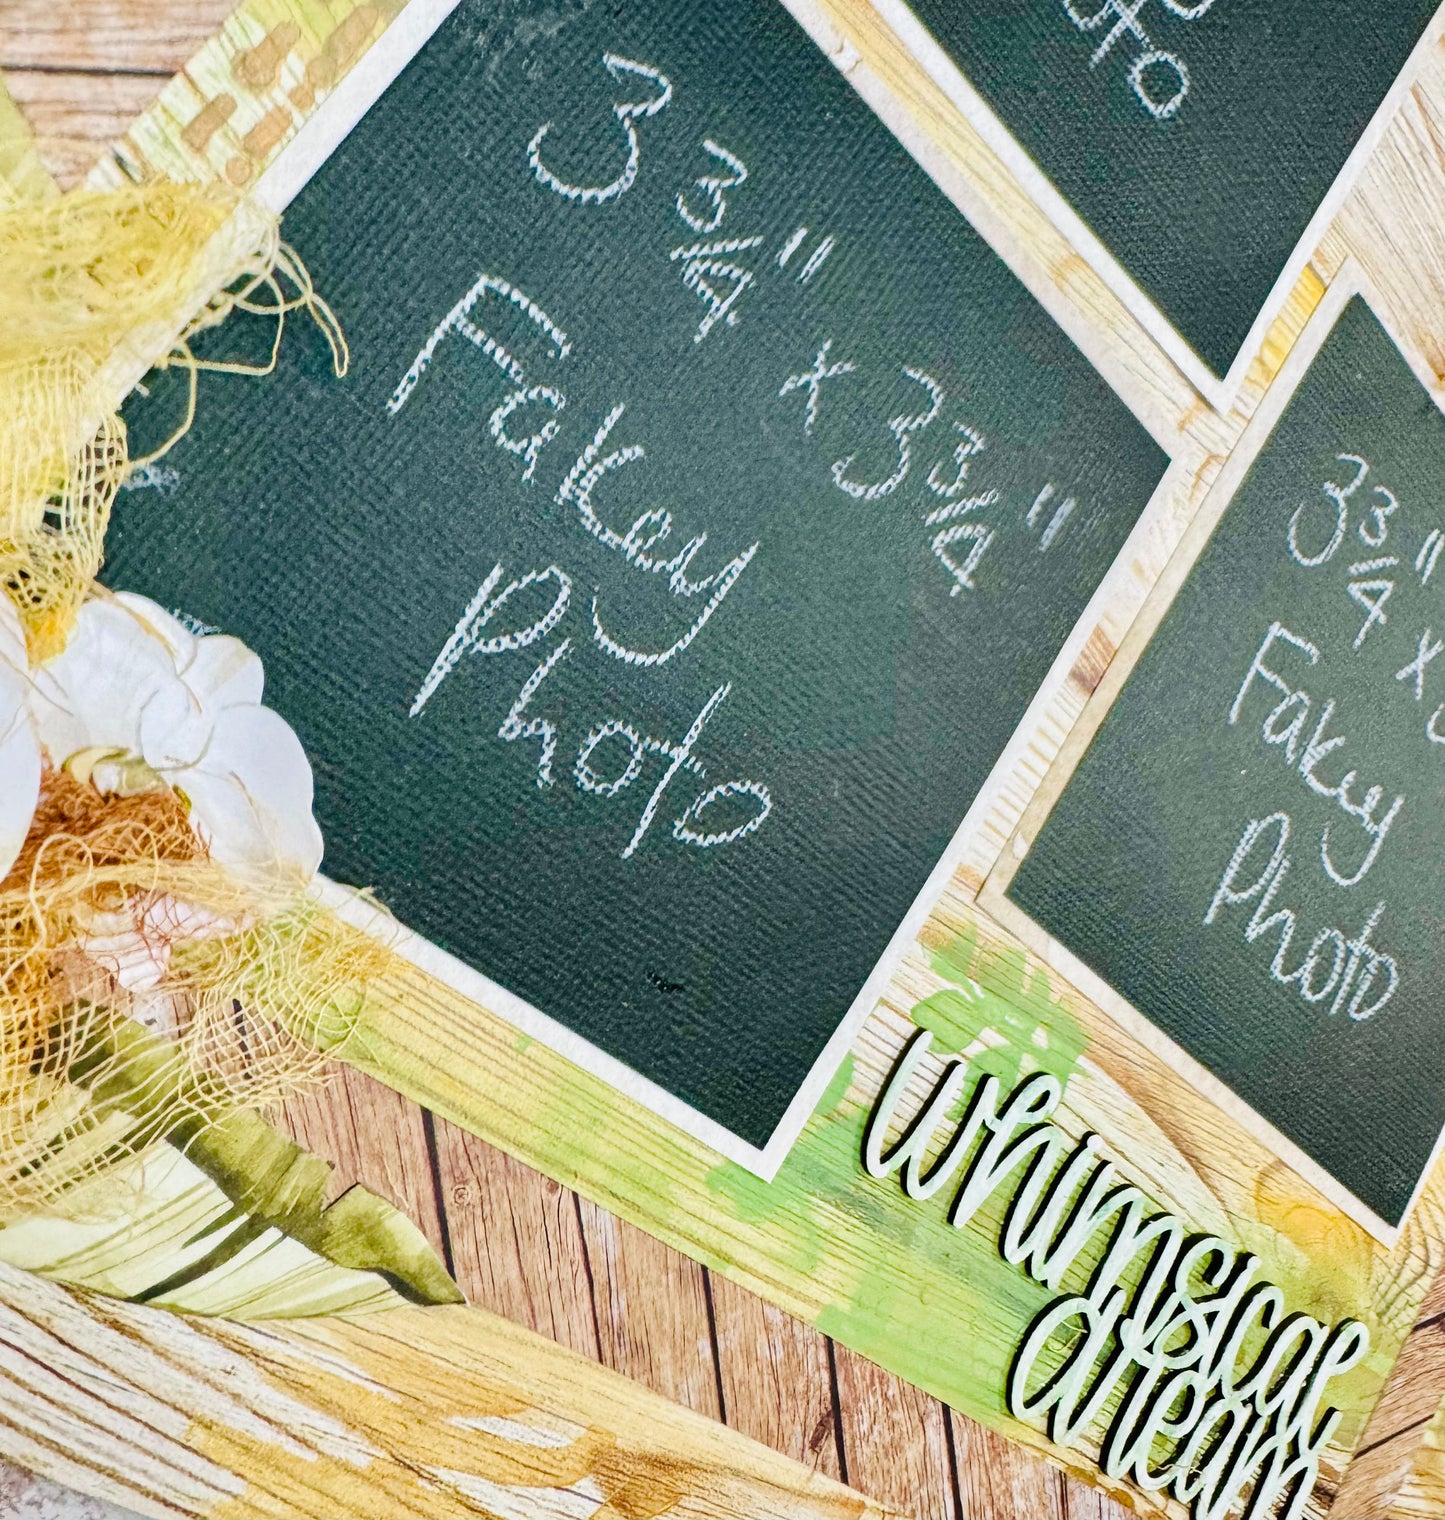 3 3/4" x 3 3/4"
Faky
Photo
oto
3 3/4" x
Faky
Photo
whimsical
dream